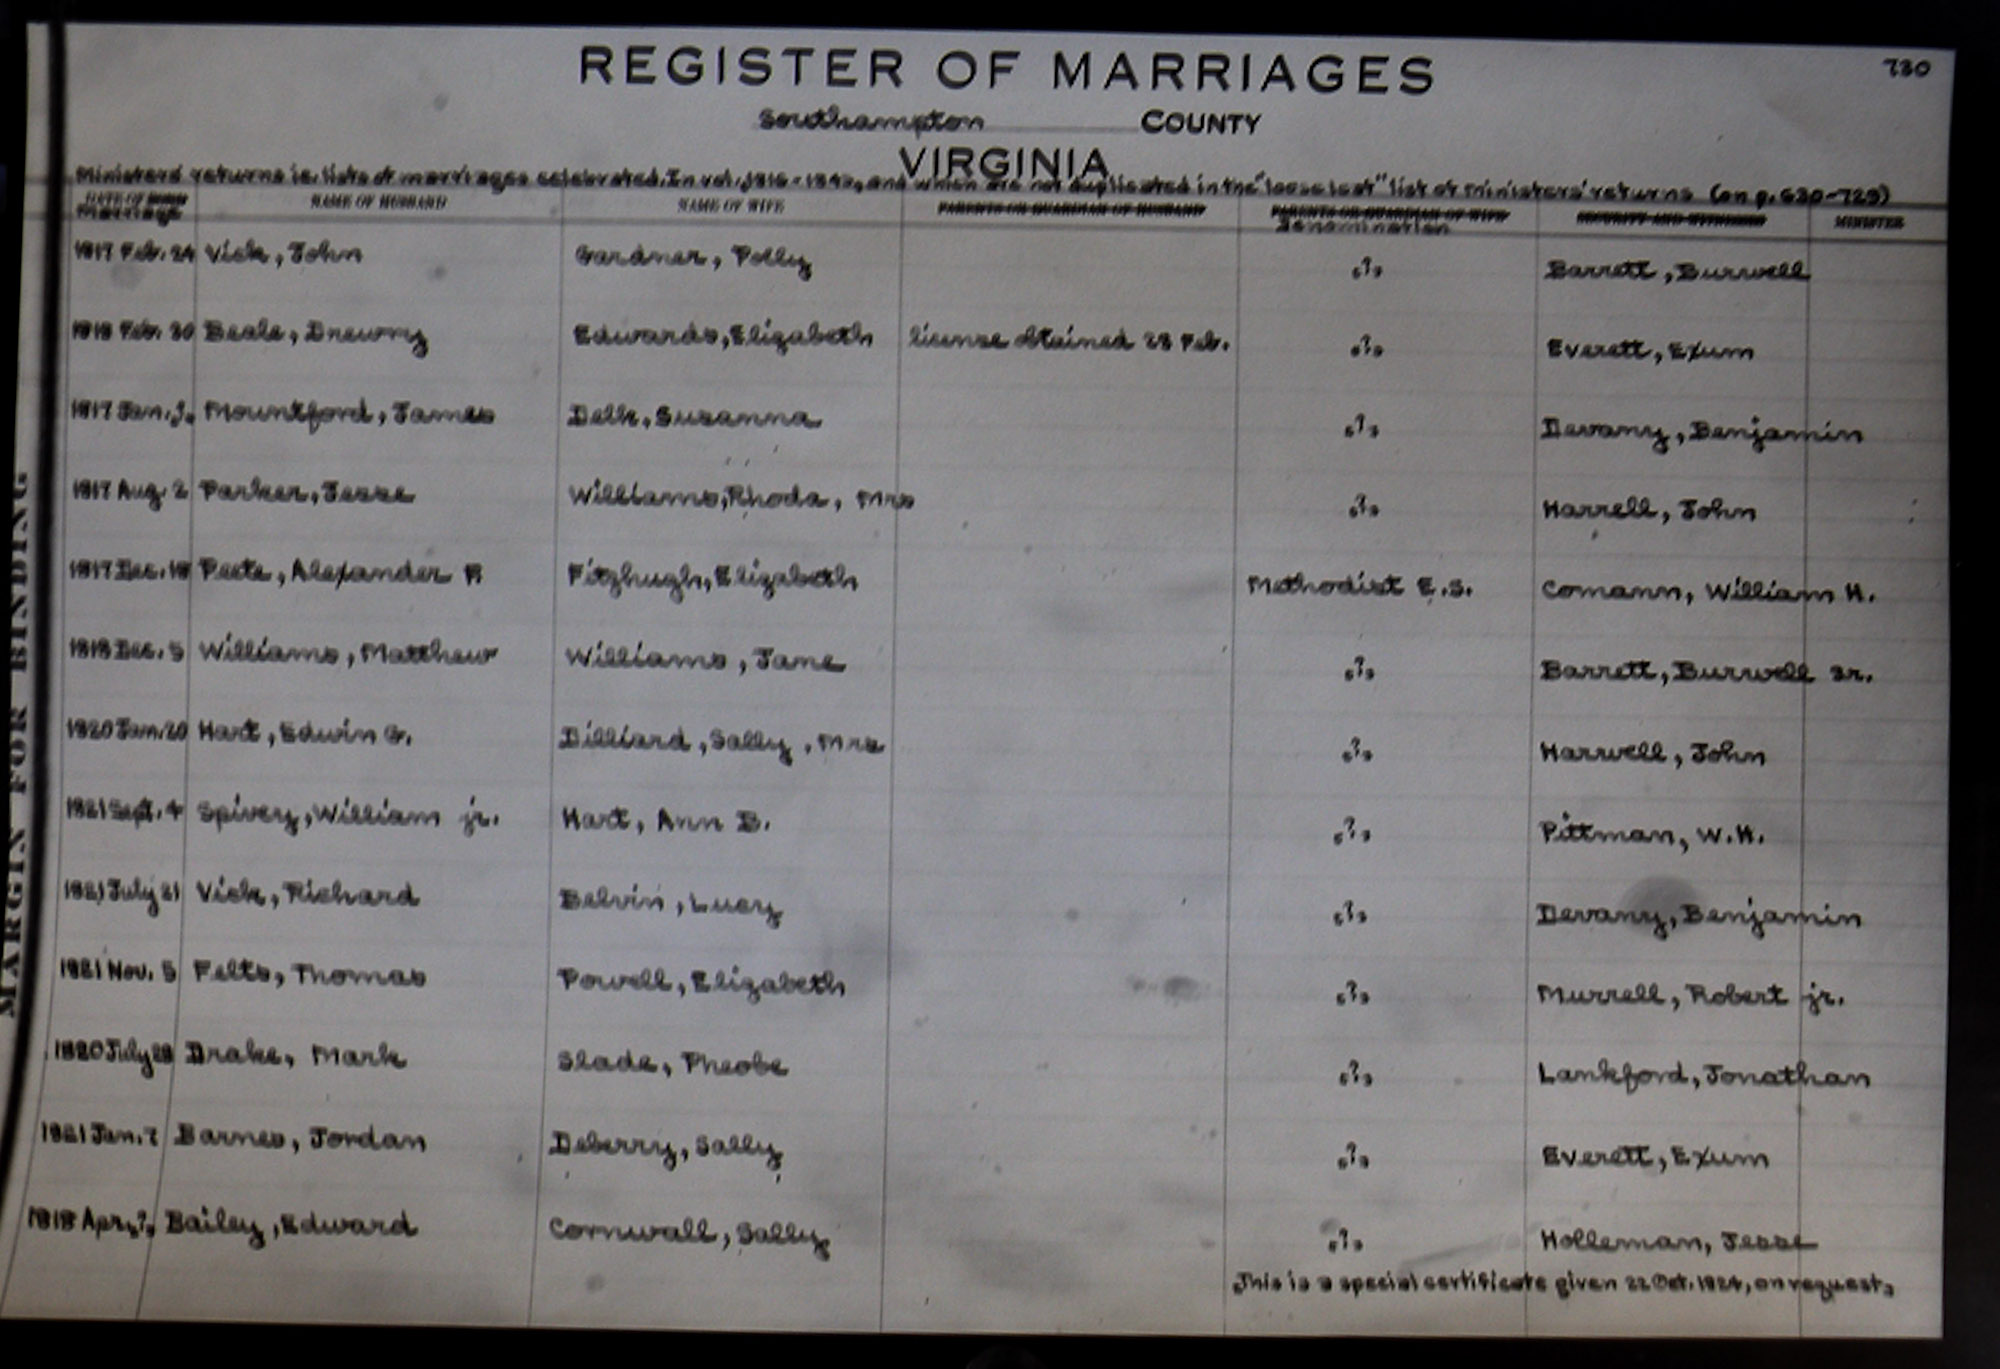 730
REGISTER OF MARRIAGES
Southampton COUNTY
VIRGINIA
Ministers' returns ie. lists of marriages celebrated. In vol. 1816-1843, and which are not duplicated in the "loose leaf" list of ministers' returns (on p. 630-729)
DATE OF BOND Marriage NAME OF HUSBAND NAME OF WIFE PARENTS OR GUARDIAN OF HUSBAND PARENTS OR GUARDIAN OF WIFE Denomination SECURITY AND WITNESSES MINISTER
1817 Feb. 24 Vick, John Gardner, Polly ? Barrett, Burwell
1818 Feb. 30 Beale, Drewry Edwards, Elizabeth license obtained 28 Feb. ? Everett, Exum
1817 Jan. Mountford, James Delk, Susanna ? Devany, Benjamin
1817 Aug. 2 Parker, Jesse Williams, Rhoda, Mrs ? Harrell, John
1817 Dec. 18 Peete, Alexander Fitzhugh, Elizabeth Methodist E.S. Comann, William H.
1818 Dec. 5 Williams, Matthew Williams, Jane ? Barrett, Burwell sr.
1820 Jan. 20 Hart, Edwin G. Dilliard, Sally, Mrs ? Harwell, John
1821 Sept. 4 Spivey, William jr. Hart, Ann B. ? Pittman, W.H.
1821 July 21 Vick, Richard Belvin, Lucy ? Devany, Benjamin
1821 Nov. 5 Felts, Thomas Powell, Elizabeth ? Murrell, Robert jr.
1820 July 28 Drake, Mark Slade, Pheobe ? Lankford, Jonathan
1821 Jan. 7 Barnes, Jordan Deberry, Sally ? Everett, Exum
1818 Apr. ? Bailey, Edward Cornwall, Sally ? Holleman, Jesse
This is a special certificate given 22 Oct. 1824, on request.
MARGIN FOR BINDING